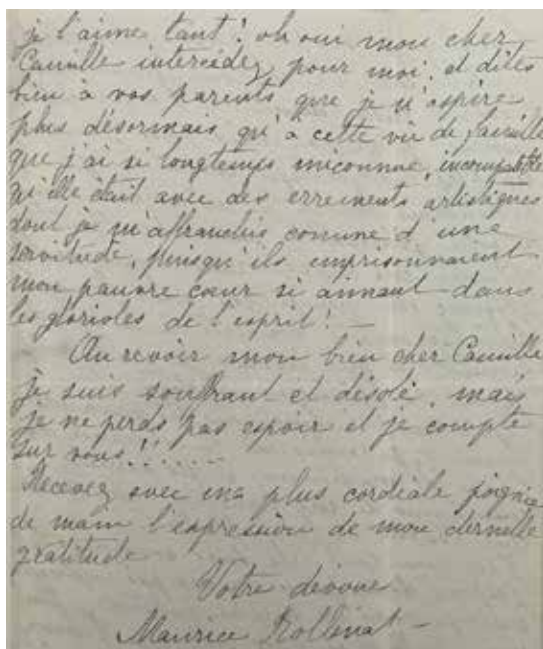 je l'aime tant ! oh oui mon cher
Camille intercédez pour moi, et dites
bien à vos parents que je n'aspire
plus désormais qu'à cette vie de famille
que j'ai si longtemps méconnue, incompatible
qu'elle était avec des errements artistiques
dont je m'affranchis comme d'une
servitude, puisqu'ils emprisonnaient
mon pauvre cœur si aimant dans
les glorioles de l'esprit ! —
Au revoir mon bien cher Camille
je suis souffrant et désolé, mais
je ne perds pas espoir et je compte
sur vous !! .....
Recevez avec ma plus cordiale poignée
de main l'expression de mon éternelle
gratitude
Votre dévoué
Maurice Rollinat —